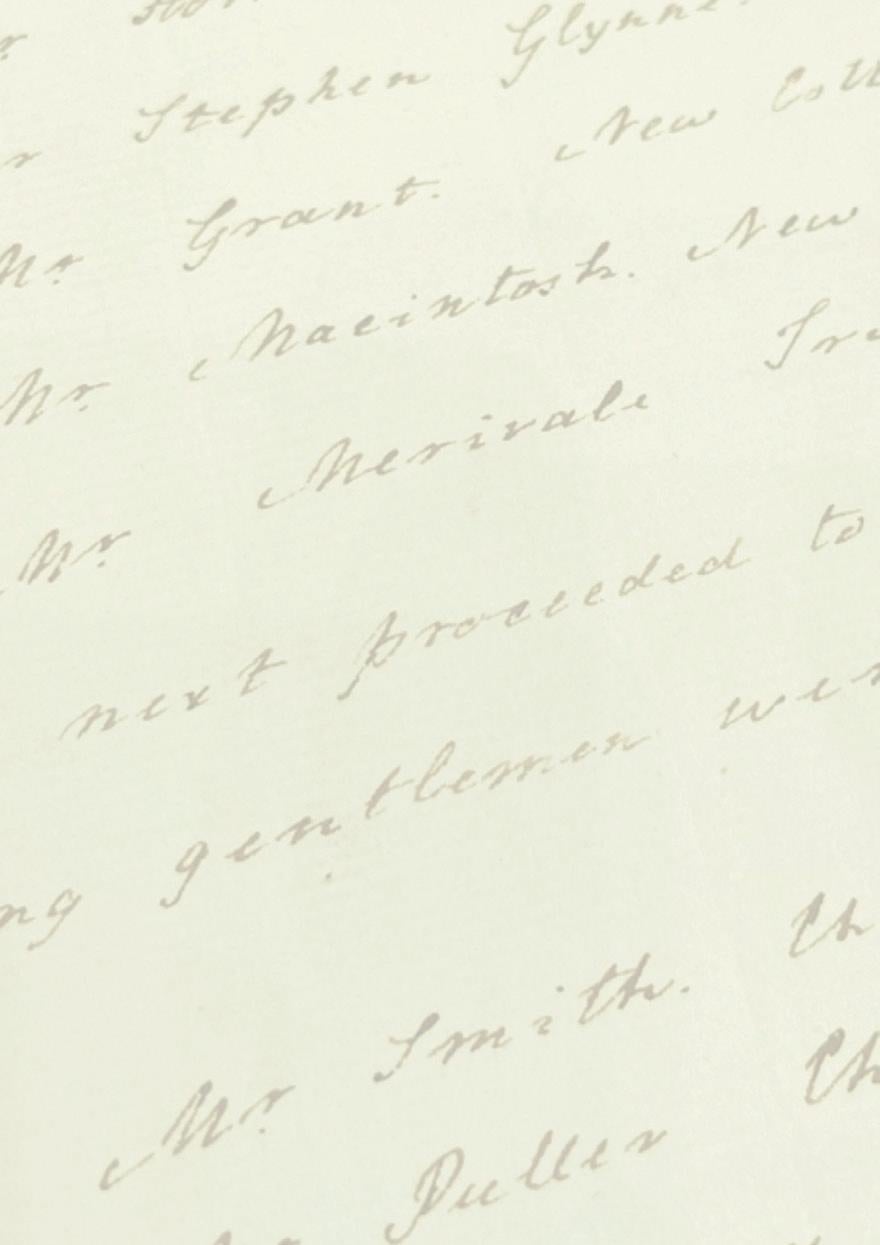 Stephen Glynne.
Mr Grant. New Coll
Mr Macintosh. New
Mr Merivale Tr
next proceeded to
gentlemen wer
Mr Smith. Ch
Puller Ch